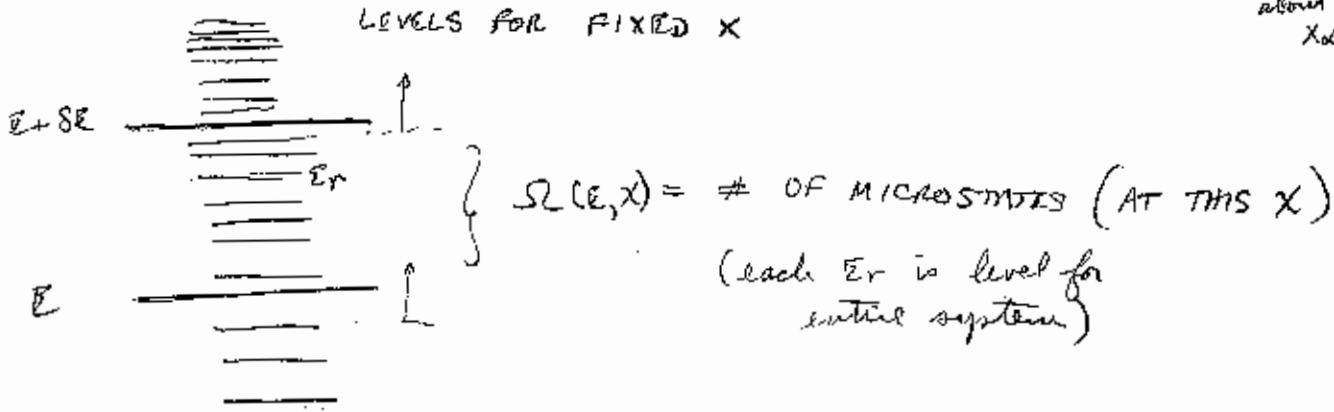 LEVELS FOR FIXED X
about
E + δE
Er
Ω(E,X) = # OF MICROSTATES (AT THIS X)
E
(each Er is level for
entire system)